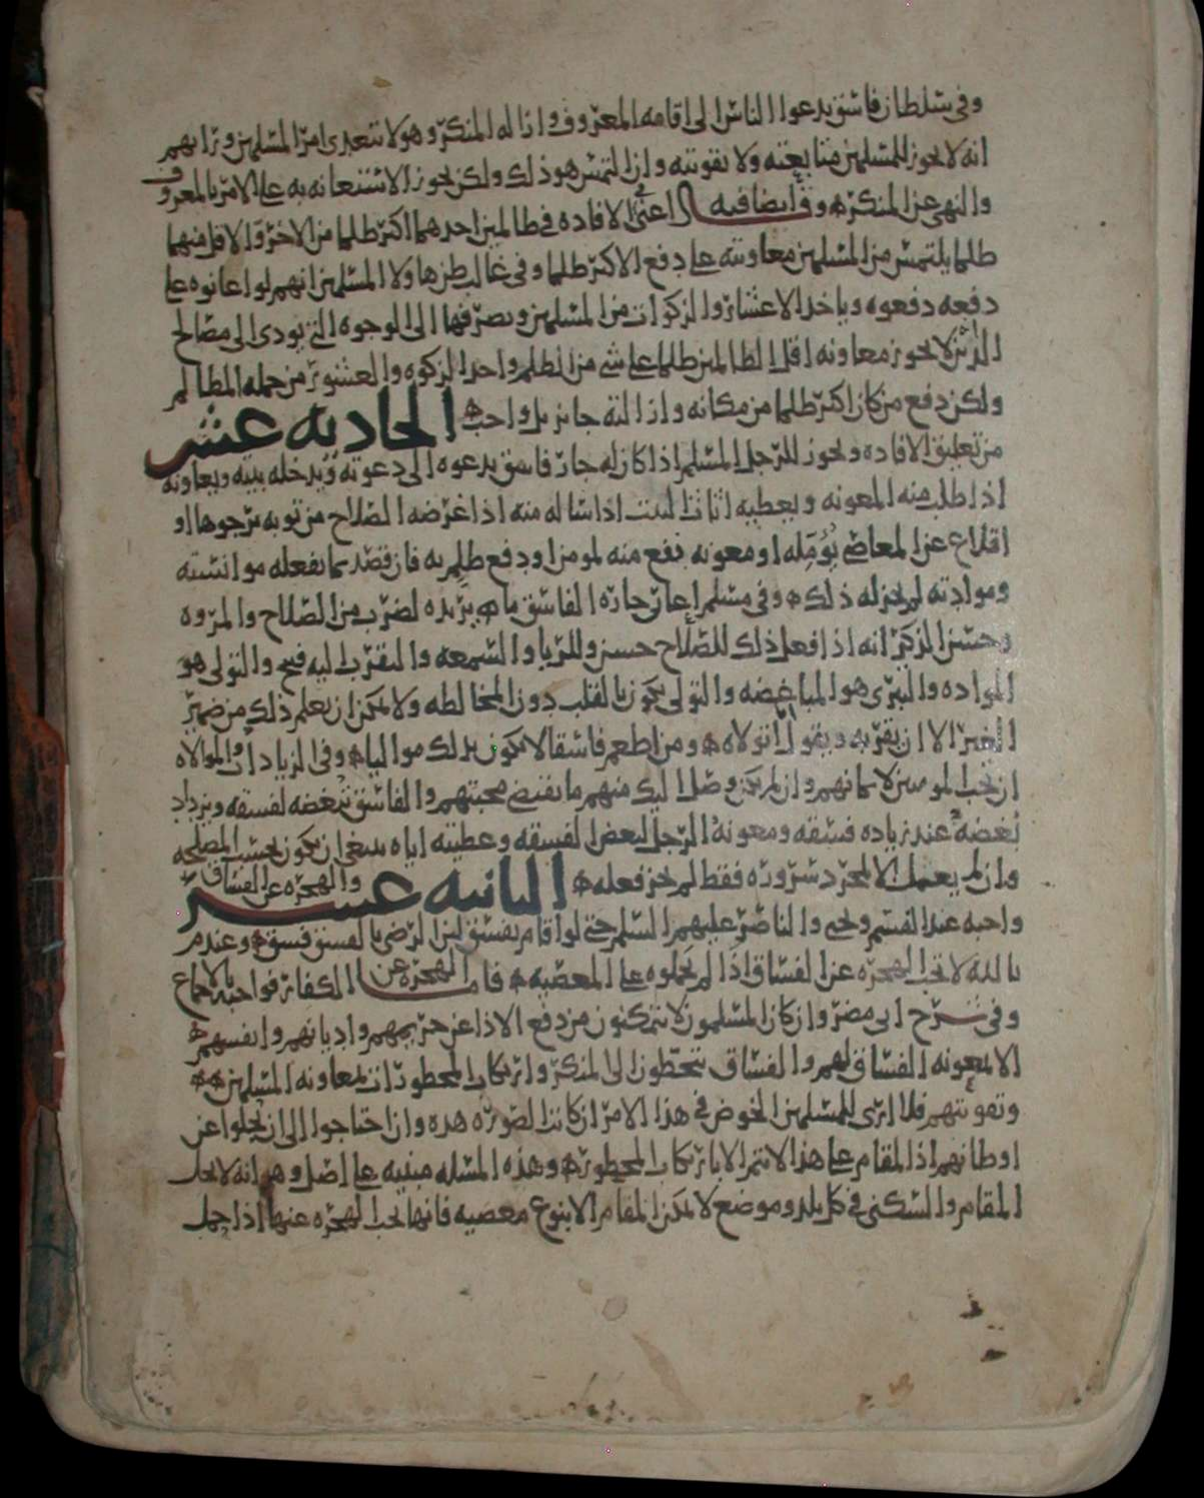 وفي سلطان فاسق يدعوا الناس الى اقامه المعروف وازاله المنكر وهو لا يتعدى امر المسلمين ورايهم
انه لا يجوز للمسلمين متابعته ولا تقويته وان التمس هو ذلك ولكن يجوز الاستعانه به على الامر بالمعروف
والنهي عن المنكر ه وفايضا فيه اعني الافاده في ظالمين احدهما اكثر ظلما من الاخر والاقل منهما
ظلما يلتمس من المسلمين معاونته على دفع الاكثر ظلما وفي غالب ظن هاولا المسلمين انهم لو اعانوه على
دفعه دفعوه وياخذ الاعشار والزكوات من المسلمين ويصرفها الى الوجوه التي يودي الى مصالح
الدين لا يجوز معاونه اقل الظالمين ظلما على شي من الظلم واخذ الزكوه والعشور من جمله المظالم
ولكن دفع من كان اكثر ظلما من مكانه وازالته جايز بل واجب ه الحاديه عشر
من تعليق الافاده ويجوز للرجل المسلم اذا كان له جار فاسق يدعوه الى دعوته ويدخله بيته ويعاونه
اذا طلب منه المعونه ويعطيه اثاث البيت اذا ساله منه اذا غرضه الصلاح من توبه يرجوها او
اقلاع عن المعاصي يؤمله او معونه تقع منه لمومن او دفع ظلم به فان قصد بما يفعله موانسته
وموادته لم يجز له ذلك ه وفي مسلم اعان جاره الفاسق ما يريده لضرب من الصلاح والمروه
وحسن الذكر انه اذا فعل ذلك للصلاح حسن وللريا والسمعه والتقرب اليه قبح والتولي هو
الموادة والتبري هو المباغضه والتولي يكون بالقلب دون المخالطه ولا يمكن ان يعلم ذلك من ضمير
الغير الا ان يقر به ويقول اتولاه ه ومن اطعم فاسقا لا يكون بذلك مواليا ه وفي الزيادات والموالاه
ان تحب المومنين لايمانهم وان لم يكن وصل اليك منهم ما يقتضي محبتهم والفاسق تبغضه لفسقه ويزداد
بغضه عند زياده فسقه ومعونه الرجل لبعض الفسقه وعطيته اياه ينبغي ان يكون بحسب المصلحه
وان لم يعمل الا لمجرد سروره فقط لم يجز فعله ه الثانيه عشر والهجره عن الفساق
واجبه عند القسم ويحيى والناصر عليهم السلم حتى لو اقام يفسق لان الرضى بالفسق فسق ه وعند م
بالله لا تجب الهجره عن الفساق اذا لم يحملوه على المعصيه ه فاما الهجره عن الكفار فواجبه بالاجماع
وفي شرح ابي مضر وان كان المسلمون لا يتمكنون من دفع الاذا عن حريمهم واديانهم وانفسهم ه
الا بمعونه الفساق لهم والفساق يتخطون الى المنكر وارتكاب المحظورات بمعاونه المسلمين ه ه
وتقويتهم فلا ارى للمسلمين الخوض في هذا الامر ان كانت الصوره هذه وان احتاجوا الى ان يجلوا عن
اوطانهم اذ المقام على هذا لا يتم الا بارتكاب المحظور ه وهذه المسله مبنيه على اصل وهو انه لا يحل
المقام والسكنى في كل بلد وموضع لا يمكن المقام الا بنوع معصيه فانها تجب الهجره عنها اذا حمل